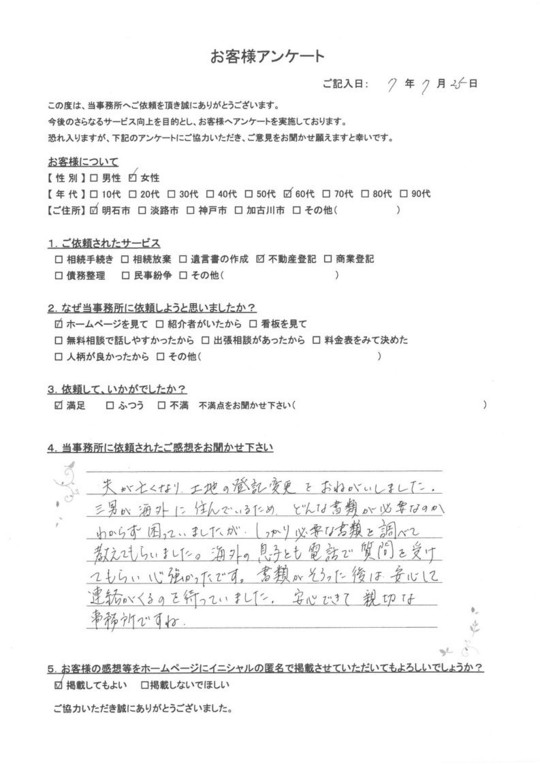 お客様アンケート
ご記入日： 7 年 7 月 25 日
この度は、当事務所へご依頼を頂き誠にありがとうございます。
今後のさらなるサービス向上を目的とし、お客様へアンケートを実施しております。
恐れ入りますが、下記のアンケートにご協力いただき、ご意見をお聞かせ願えますと幸いです。
お客様について
【 性 別 】 □ 男性 ☑ 女性
【 年 代 】 □ 10代 □ 20代 □ 30代 □ 40代 □ 50代 ☑ 60代 □ 70代 □ 80代 □ 90代
【ご住所】 ☑ 明石市 □ 淡路市 □ 神戸市 □ 加古川市 □ その他( )
1．ご依頼されたサービス
□ 相続手続き □ 相続放棄 □ 遺言書の作成 ☑ 不動産登記 □ 商業登記
□ 債務整理 □ 民事紛争 □ その他( )
2．なぜ当事務所に依頼しようと思いましたか？
☑ ホームページを見て □ 紹介者がいたから □ 看板を見て
□ 無料相談で話しやすかったから □ 出張相談があったから □ 料金表をみて決めた
□ 人柄が良かったから □ その他( )
3．依頼して、いかがでしたか？
☑ 満足 □ ふつう □ 不満 不満点をお聞かせ下さい( )
4．当事務所に依頼されたご感想をお聞かせ下さい
夫が亡くなり 土地の登記変更 を おねがいしました。
三男が 海外に 住んでいるため どんな書類が必要なのか
わからず 困っていましたが、しっかり必要な書類を調べて
教えてもらいました。海外の息子とも電話で質問を受け
てもらい心強かったです。書類がそろった後は安心して
連絡がくるのを待っていました。安心できて 親切な
事務所ですね。
5．お客様の感想等をホームページにイニシャルの匿名で掲載させていただいてもよろしいでしょうか？
☑ 掲載してもよい □掲載しないでほしい
ご協力いただき誠にありがとうございました。